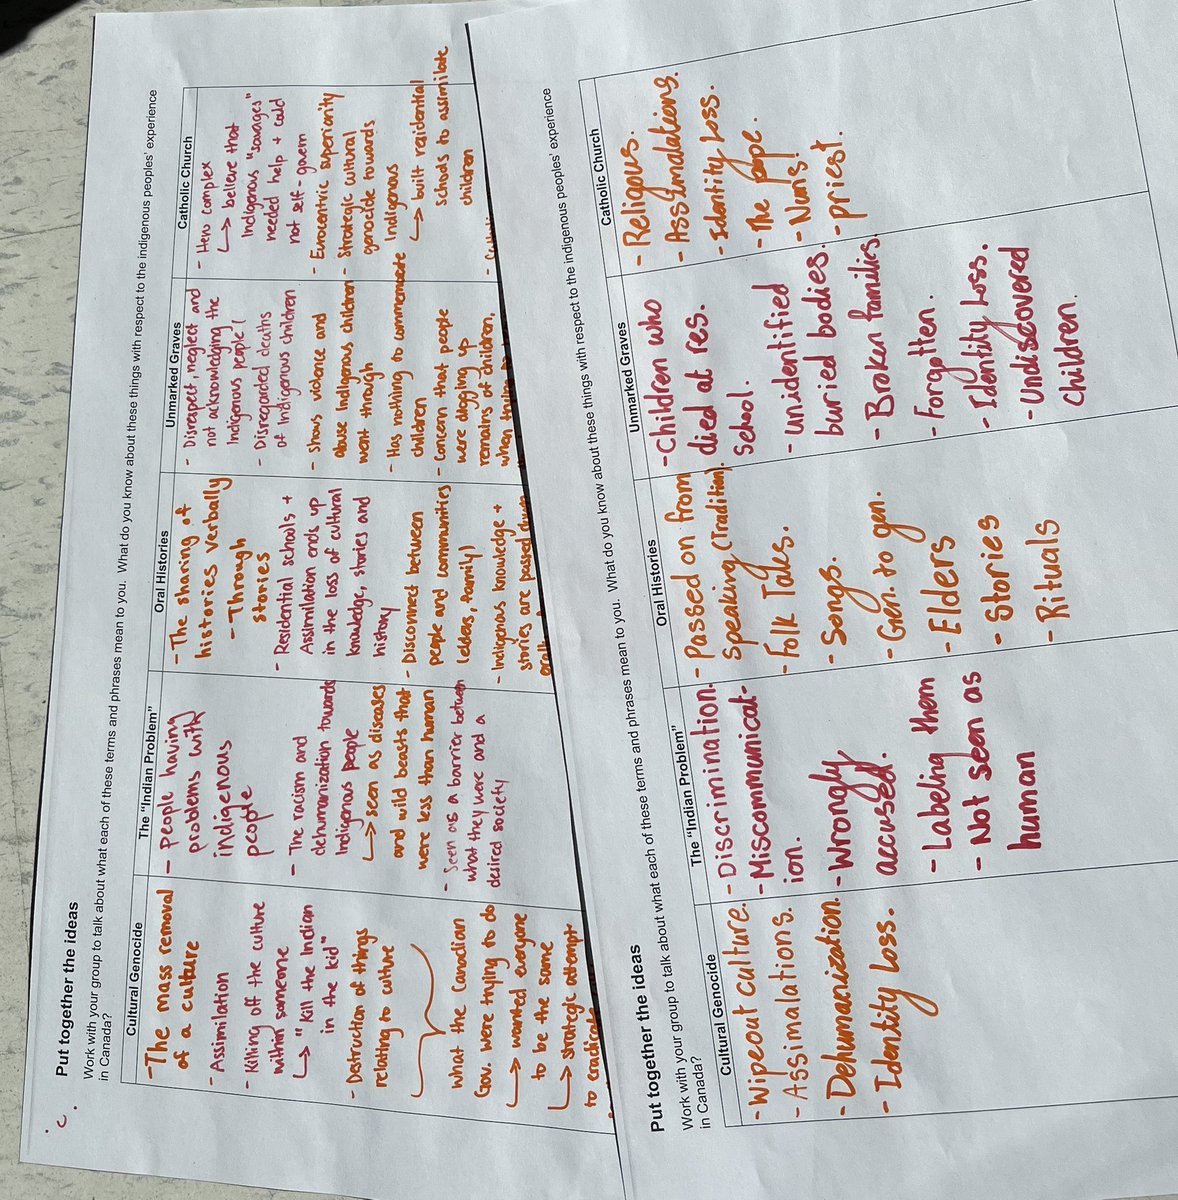 Put together the ideas
Work with your group to talk about what each of these terms and phrases mean to you. What do you know about these things with respect to the indigenous peoples' experience
in Canada?
Cultural Genocide
- The mass removal
of a culture
- Assimilation
- Killing off the culture
within someone
↳ "Kill the Indian
in the kid"
- Destruction of things
relating to culture
What the Canadian
Gov. were trying to do
↳ wanted everyone
to be the same
↳ strategic attempt
to eradicate
The "Indian Problem"
- People having
problems with
indigenous
people
- The racism and
dehumanization towards
Indigenous people
↳ seen as diseases
and wild beasts that
were less than human
- Seen as a barrier between
what they were and a
desired society
Oral Histories
- The sharing of
histories verbally
- Through
stories
- Residential schools +
Assimilation ends up
in the loss of cultural
knowledge, stories and
history
- Disconnect between
people and communities
(elders, family)
- Indigenous knowledge +
stories are passed down
Unmarked Graves
- Disrespect, neglect and
not acknowledging the
Indigenous people (
- Disregarded deaths
of Indigenous children
- Shows violence and
abuse Indigenous children
went through
- Has nothing to commemorate
children
- Concern that people
were digging up
remains of children,
when trying
Catholic Church
- Hero complex
↳ believe that
Indigenous "savages"
needed help + could
not self-govern
- Eurocentric superiority
- Strategic cultural
genocide towards
Indigenous
↳ built residential
schools to assimilate
children
Put together the ideas
Work with your group to talk about what each of these terms and phrases mean to you. What do you know about these things with respect to the indigenous peoples' experience
in Canada?
Cultural Genocide
- Wipeout culture.
- Assimalations.
- Dehumanization.
- Identity Loss.
The "Indian Problem"
- Discrimination.
- Miscommunicat-
ion.
- Wrongly
accused.
- Labeling them
- Not seen as
human
Oral Histories
- Passed on from
Speaking (Tradition).
- Folk Tales.
- Songs.
- Gen. to gen.
- Elders
- Stories
- Rituals
Unmarked Graves
- Children who
died at res.
School.
- unidentified
buried bodies.
- Broken families
- Forgotten.
- Identity Loss.
- Undiscovered
children.
Catholic Church
- Religous.
- Assimalations.
- Identity Loss.
- The pope.
- Nuns.
- priest.